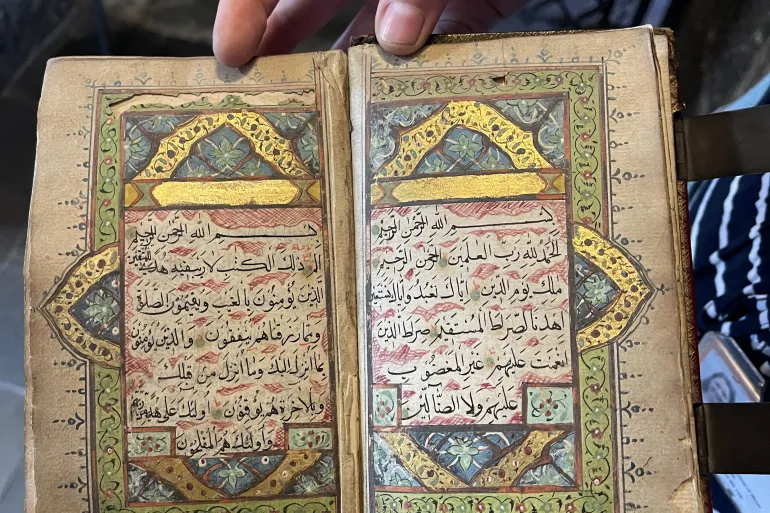 بسم الله الرحمن الرحيم
الحمد لله رب العلمين الرحمن الرحيم
ملك يوم الدين اياك نعبد واياك نستعين
اهدنا الصرط المستقيم صرط الذين
انعمت عليهم غير المغضوب
عليهم ولا الضالين
بسم الله الرحمن الرحيم
الم ذلك الكتب لا ريب فيه هدى للمتقين
الذين يؤمنون بالغيب ويقيمون الصلاة
ومما رزقناهم ينفقون والذين يؤمنون
بما انزل اليك وما انزل من قبلك
وبالاخرة هم يوقنون اولئك على هدى من
واولئك هم المفلحون